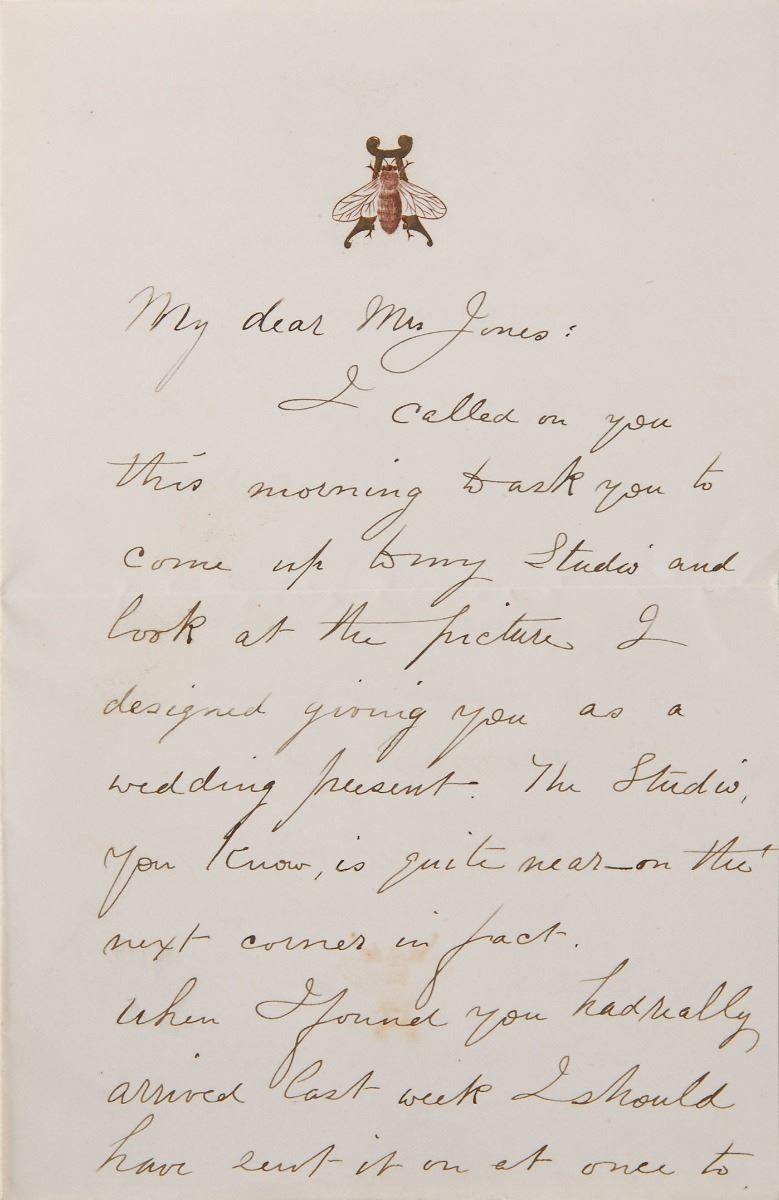 My dear Mrs Jones:
I called on you
this morning to ask you to
come up to my Studio and
look at the picture I
designed giving you as a
wedding present. The Studio,
you know, is quite near—on the
next corner in fact.
When I found you had really
arrived last week I should
have sent it on at once to